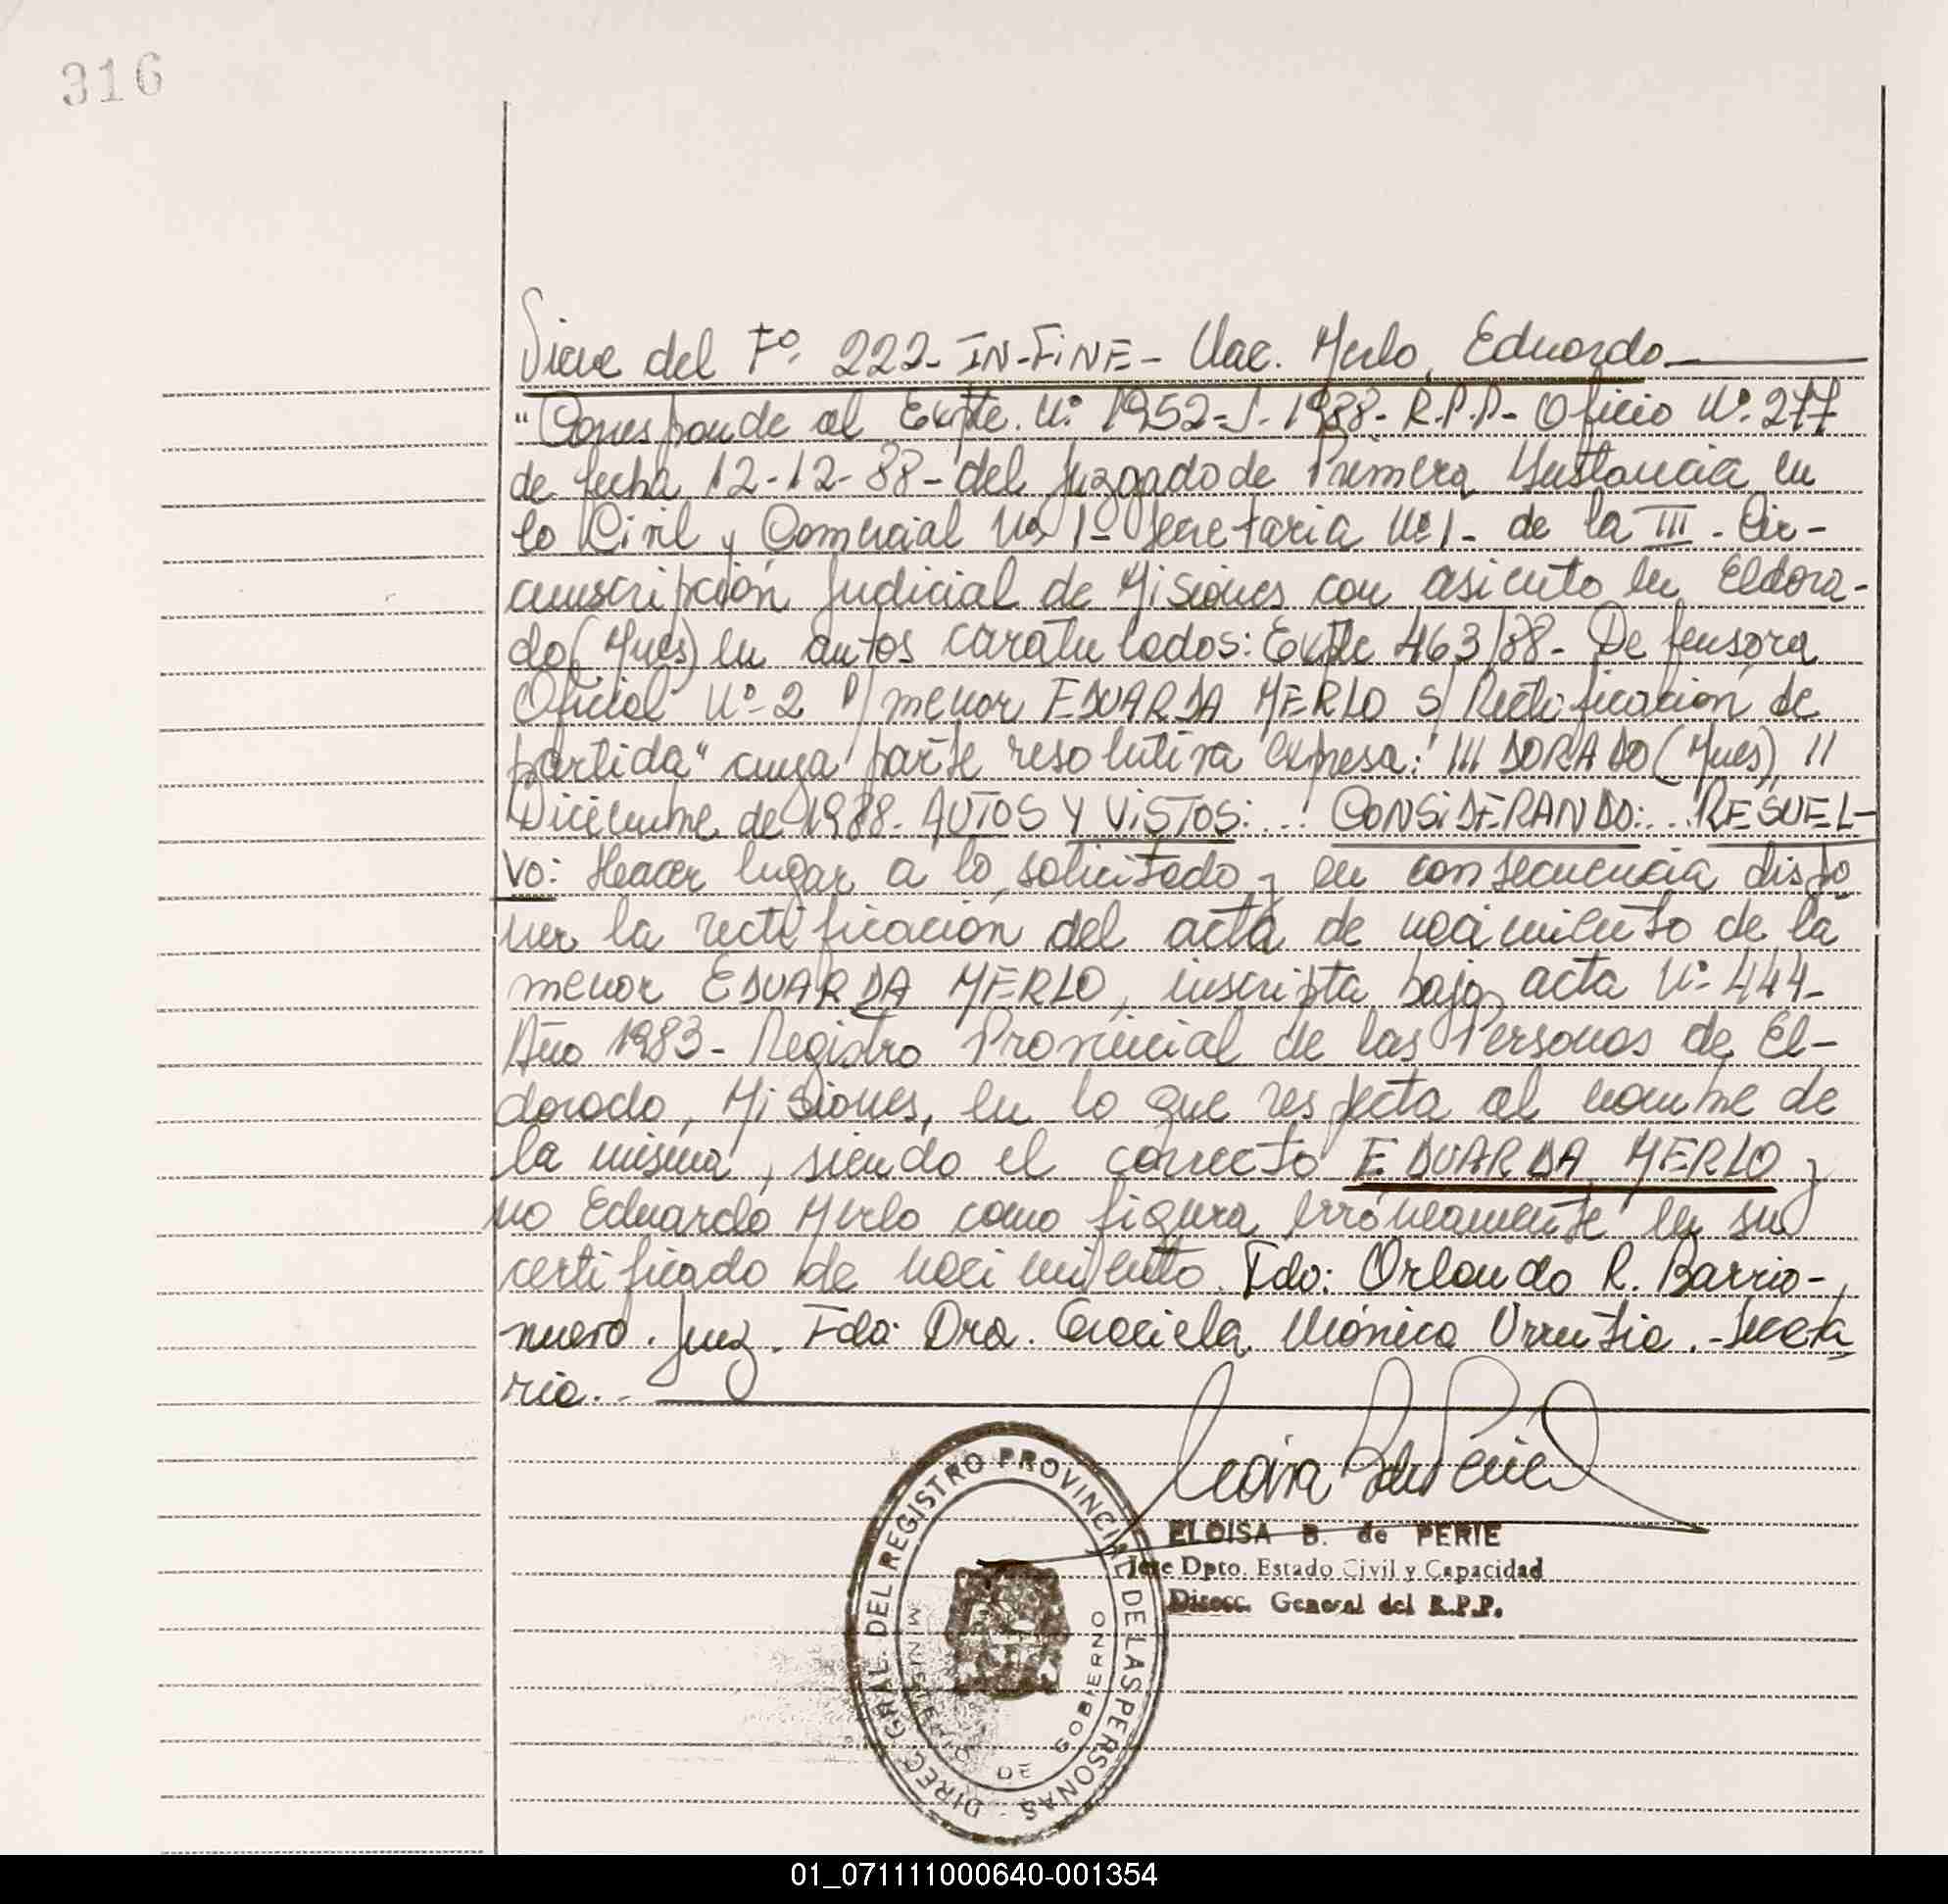 316
Viene del Fº. 222- IN-FiNE- Nac. Merlo, Eduardo
"Corresponde al Expte. Nº. 1952-J-1988- R.P.P- Oficio Nº. 277
de fecha 12-12-88- del Juzgado de Primera Instancia en
lo Civil y Comercial Nº 1- Secretaria Nº 1- de la III- Cir-
cunscripción Judicial de Misiones con asiento en Eldora-
do (Mnes) en autos caratulados: Expte 463/88- Defensora
Oficial Nº-2 P/ menor EDUARDA MERLO S/ Rectificación de
partida" cuya parte resolutiva expresa: DORADO (Mnes), 11
Diciembre de 1988- AUTOS Y ViSTOS:... CONSiDERANDO:... RESUEL-
VO: Heacer lugar a lo solicitado y en consecuencia dispo
ner la rectificación del acta de nacimiento de la
menor EDUARDA MERLO, inscripta bajo acta Nº 444-
Año 1983- Registro Provincial de las Personas de El-
dorado, Misiones, en lo que respecta al nombre de
la misma, siendo el correcto EDUARDA MERLO y
no Eduardo Merlo como figura erróneamente en su
certificado de nacimiento. Fdo: Orlando R. Barrio-
nuevo. Juez. Fdo: Dra. Graciela Mónica Urrutia.-Secreta
ria.-
ELOISA B. de PERIE
Jefe Dpto. Estado Civil y Capacidad
Direcc. General del R.P.P.
DIREC. GRAL. DEL REGISTRO PROVINCIAL DE LAS PERSONAS
MINISTERIO DE GOBIERNO
01_071111000640-001354